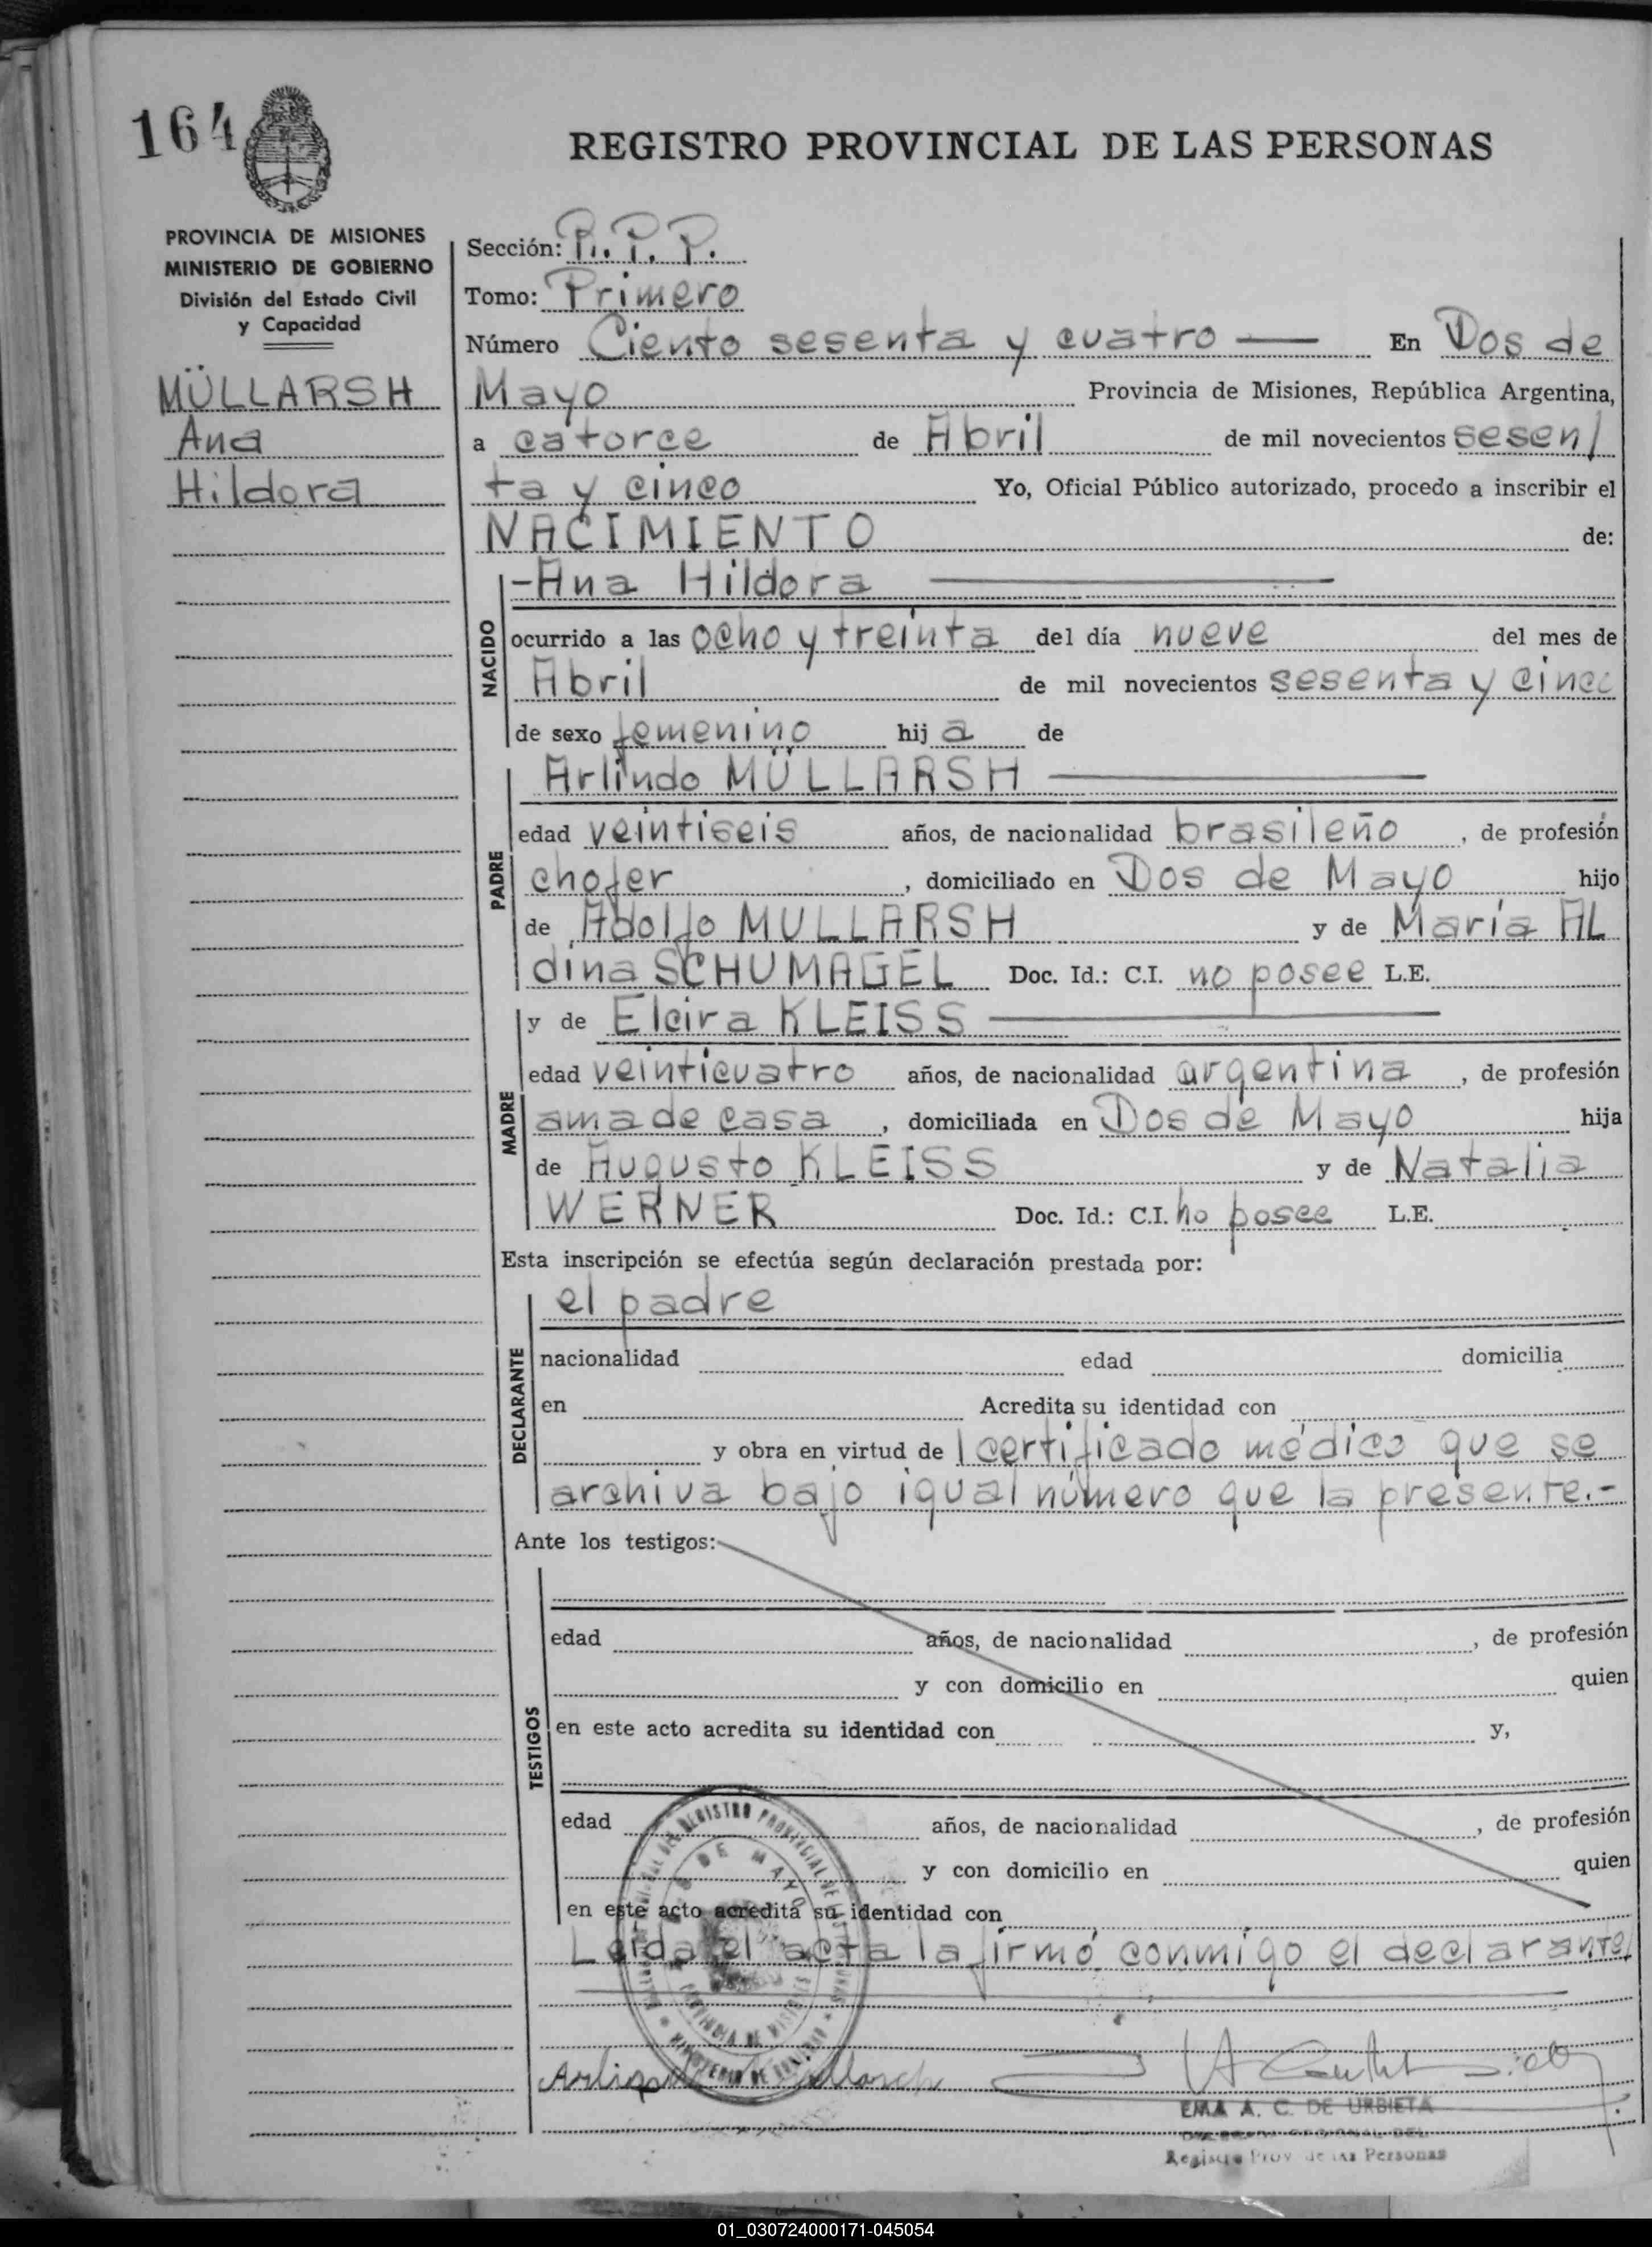 164
REGISTRO PROVINCIAL DE LAS PERSONAS
PROVINCIA DE MISIONES
MINISTERIO DE GOBIERNO
División del Estado Civil
y Capacidad
MÜLLARSH
Ana
Hildora
Sección: R. P. P.
Tomo: Primero
Número Ciento sesenta y cuatro — En Dos de
Mayo Provincia de Misiones, República Argentina,
a catorce de Abril de mil novecientos sesen/
ta y cinco Yo, Oficial Público autorizado, procedo a inscribir el
NACIMIENTO de:
NACIDO
-Ana Hildora —
ocurrido a las ocho y treinta del día nueve del mes de
Abril de mil novecientos sesenta y cinco
de sexo femenino hij a de
PADRE
Arlindo MÜLLARSH —
edad veintiseis años, de nacionalidad brasileño, de profesión
chofer, domiciliado en Dos de Mayo hijo
de Adolfo MULLARSH y de María AL
dina SCHUMAGEL Doc. Id.: C.I. no posee L.E.
MADRE
y de Elcira KLEISS —
edad veinticuatro años, de nacionalidad argentina, de profesión
ama de casa, domiciliada en Dos de Mayo hija
de Augusto KLEISS y de Natalia
WERNER Doc. Id.: C.I. no posee L.E.
Esta inscripción se efectúa según declaración prestada por:
DECLARANTE
el padre
nacionalidad edad domicilia
en Acredita su identidad con
y obra en virtud de l certificado médico que se
archiva bajo igual número que la presente.-
Ante los testigos:
TESTIGOS
edad años, de nacionalidad , de profesión
y con domicilio en quien
en este acto acredita su identidad con y,
edad años, de nacionalidad , de profesión
y con domicilio en quien
en este acto acredita su identidad con
Leida el acta la firmó conmigo el declarante/
DEL REGISTRO PROVINCIAL DE LAS PERSONAS
DE MAYO
PROVINCIA DE MISIONES
MINISTERIO DE GOBIERNO
EMA A. C. DE URBIETA
Registro Prov de las Personas
01_030724000171-045054